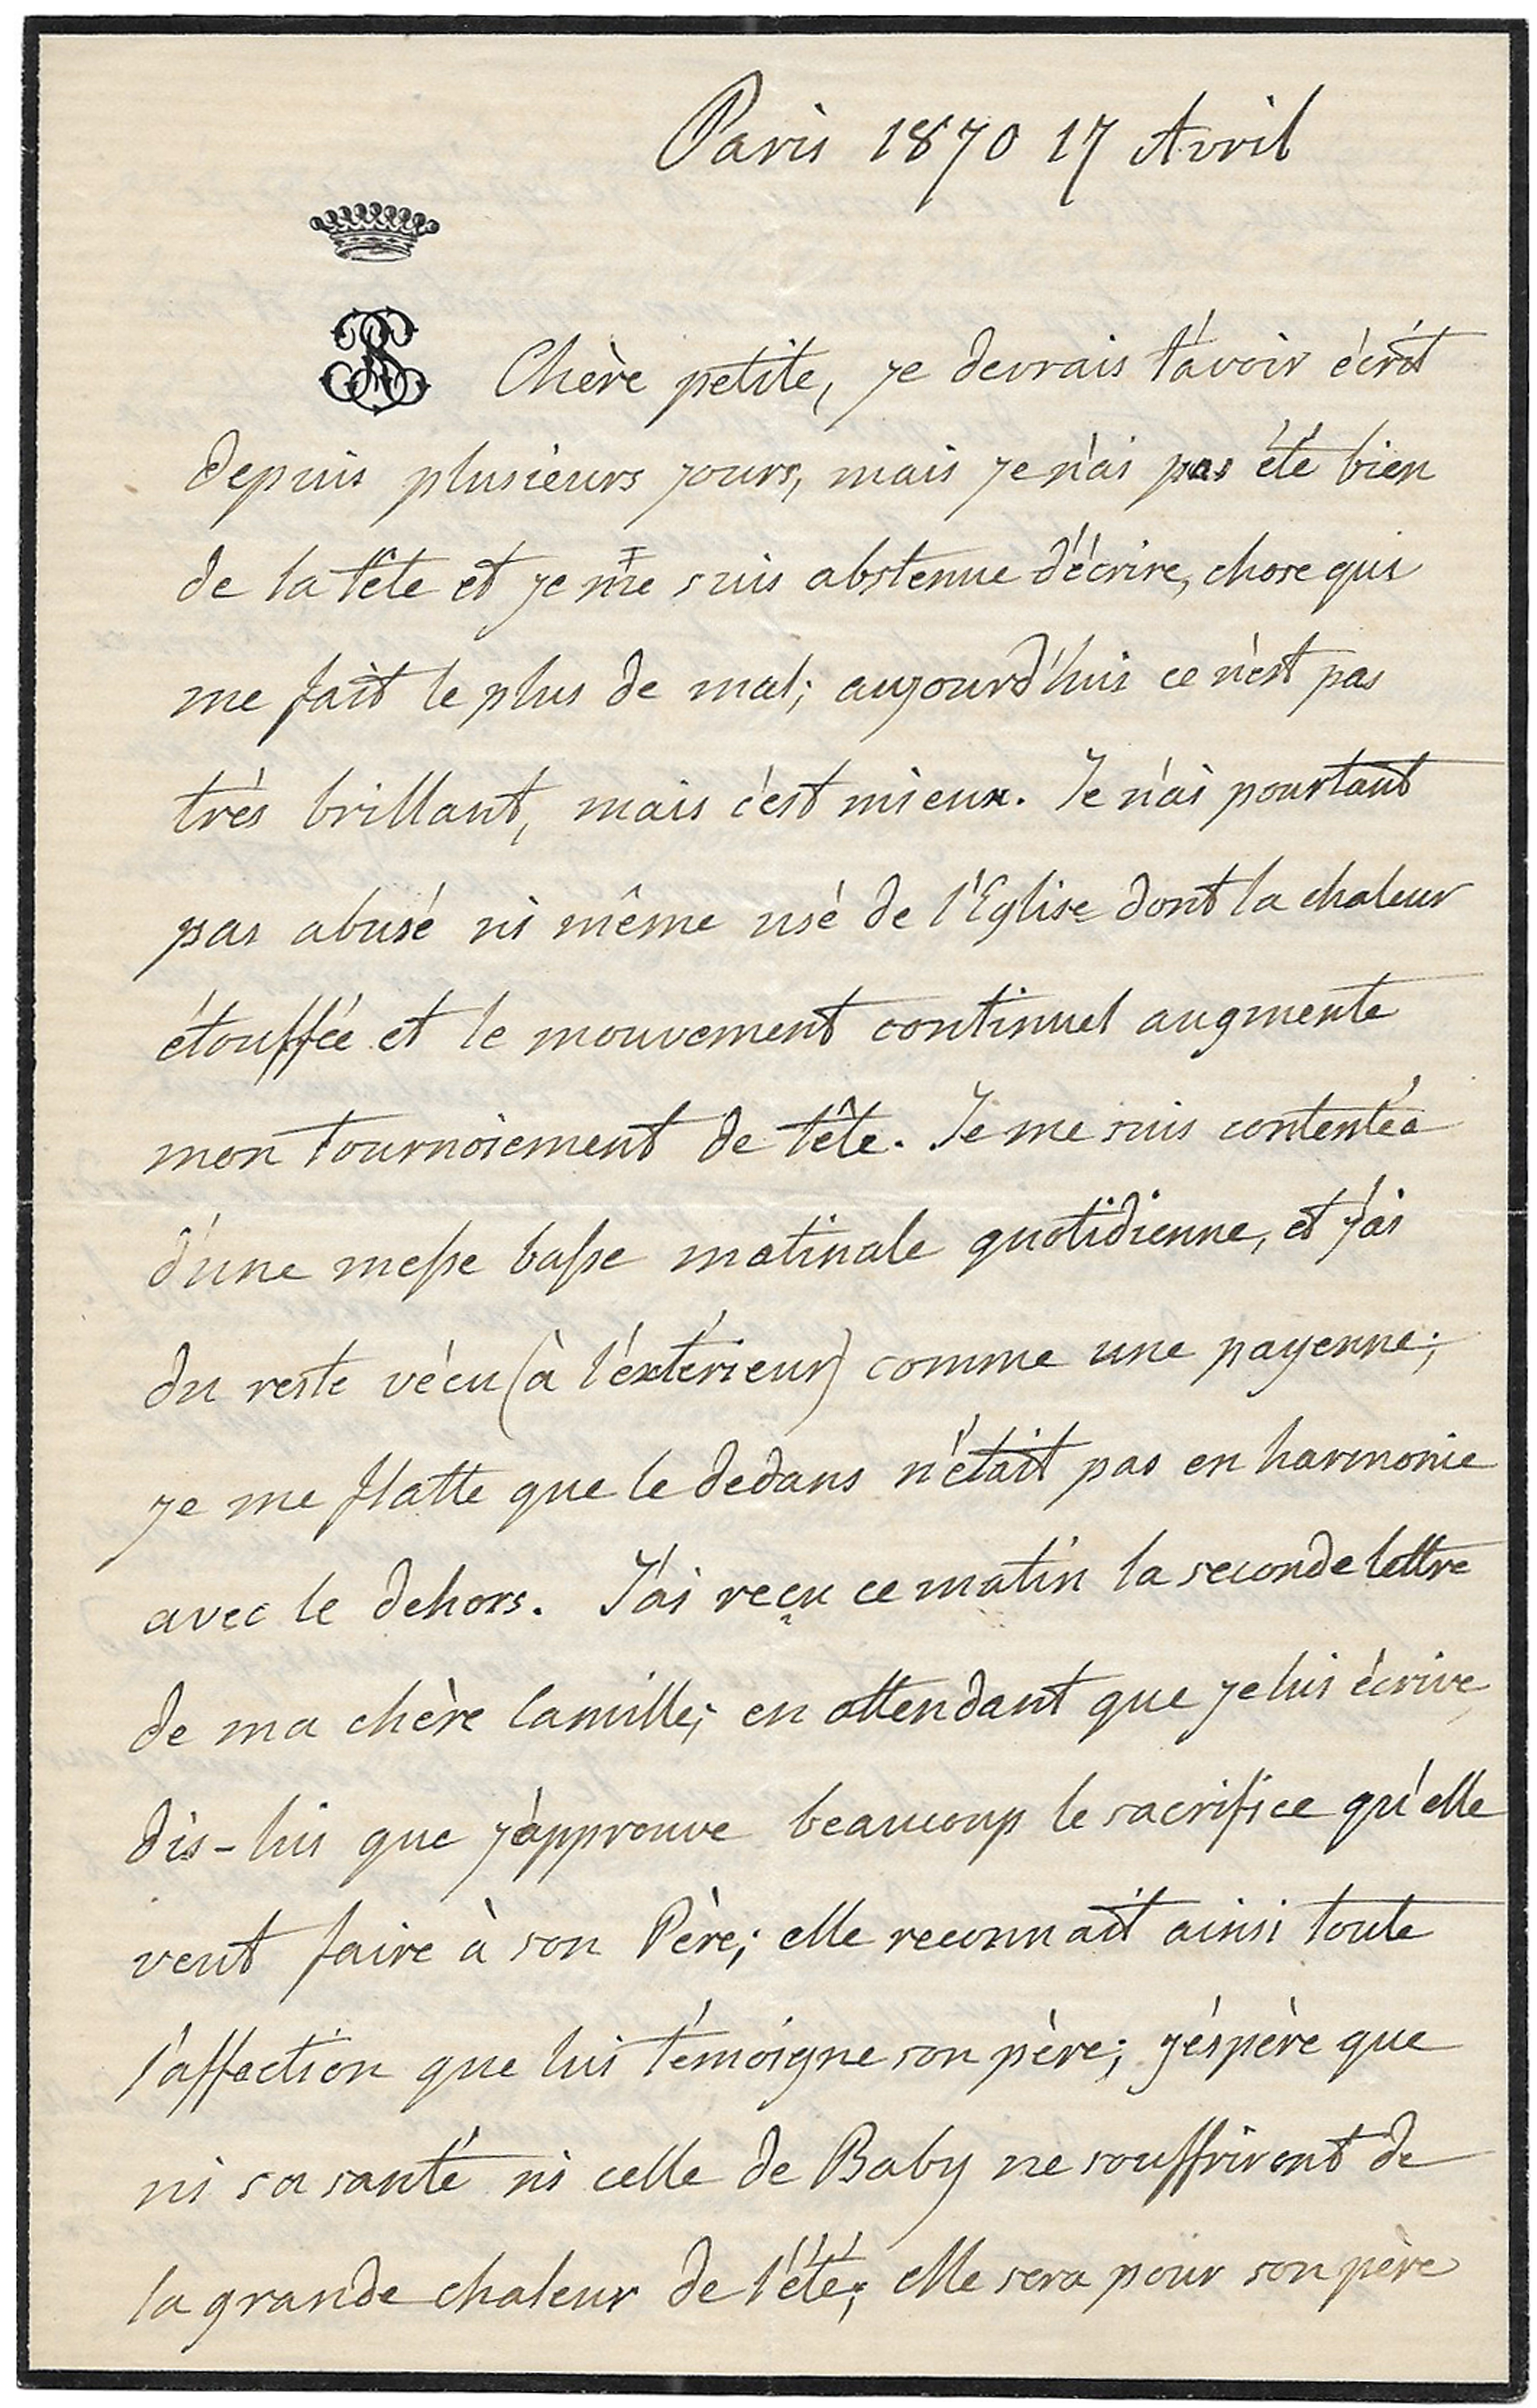 Paris 1870 17 Avril
Chère petite, je devrais t'avoir écrit
depuis plusieurs jours, mais je n'ai pas été bien
de la tête et je me suis abstenue d'écrire, chose qui
me fait le plus de mal; aujourd'hui ce n'est pas
très brillant, mais c'est mieux. Je n'ai pourtant
pas abusé ni même usé de l'Eglise dont la chaleur
étouffée et le mouvement continuel augmente
mon tournoiement de tête. Je me suis contentée
d'une messe basse matinale quotidienne, et j'ai
du reste vécu (à l'éxtérieur) comme une payenne;
je me flatte que le dedans n'était pas en harmonie
avec le dehors. J'ai reçu ce matin la seconde lettre
de ma chère Camille; en attendant que je lui écrive,
dis-lui que j'approuve beaucoup le sacrifice qu'elle
veut faire à son Père; elle reconnait ainsi toute
l'affection que lui témoigne son père; j'éspère que
ni sa santé ni celle de Baby ne souffriront de
la grande chaleur de l'été; elle sera pour son père